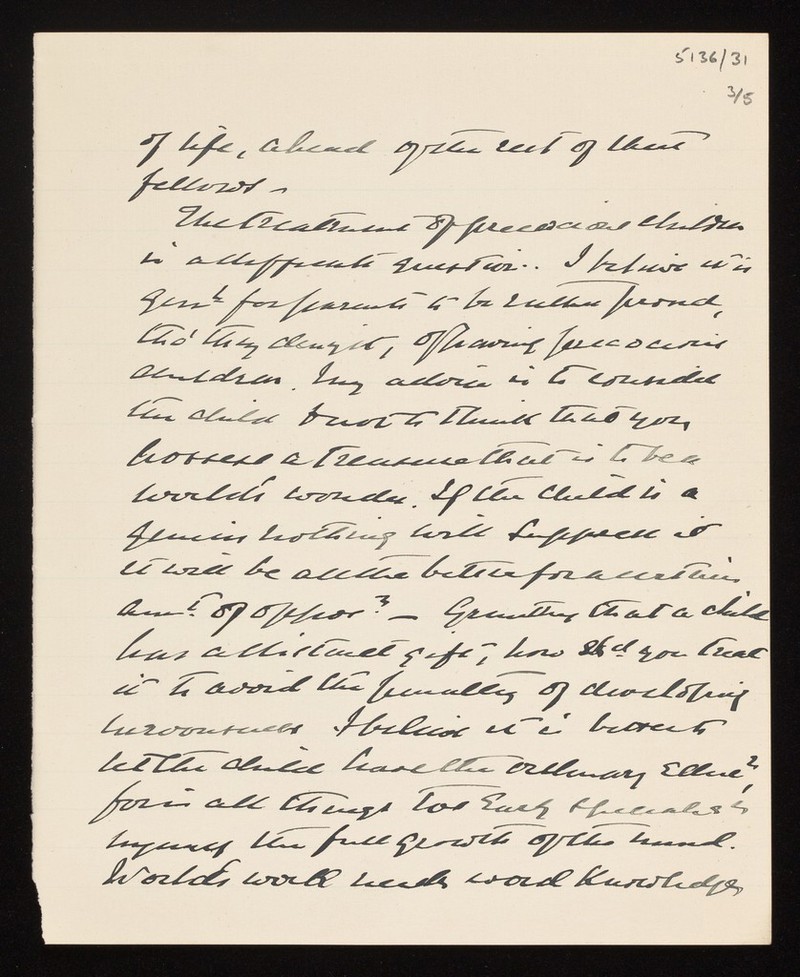 5136/31
3/5
of life, ahead of the rest of their
fellows –
The treatment of precocious children
is a different question. I believe it is
genl for parents to be rather proud,
tho' they deny it, of having precocious
children. My advice is to consider
the child & not to think that you
possess a treasure that is to be a
world's wonder. If the child is a
genius nothing will suppress it
it will be all the better for a certain
amt. of oppos n – Granting that a child
has a distinct gift, how shd you treat
it to avoid the penalty of developing
nervousness I believe it is best to
let the child have the ordinary Educn,
for in all things too Early specialisn
the full growth of the mind.
World's work needs word knowledge